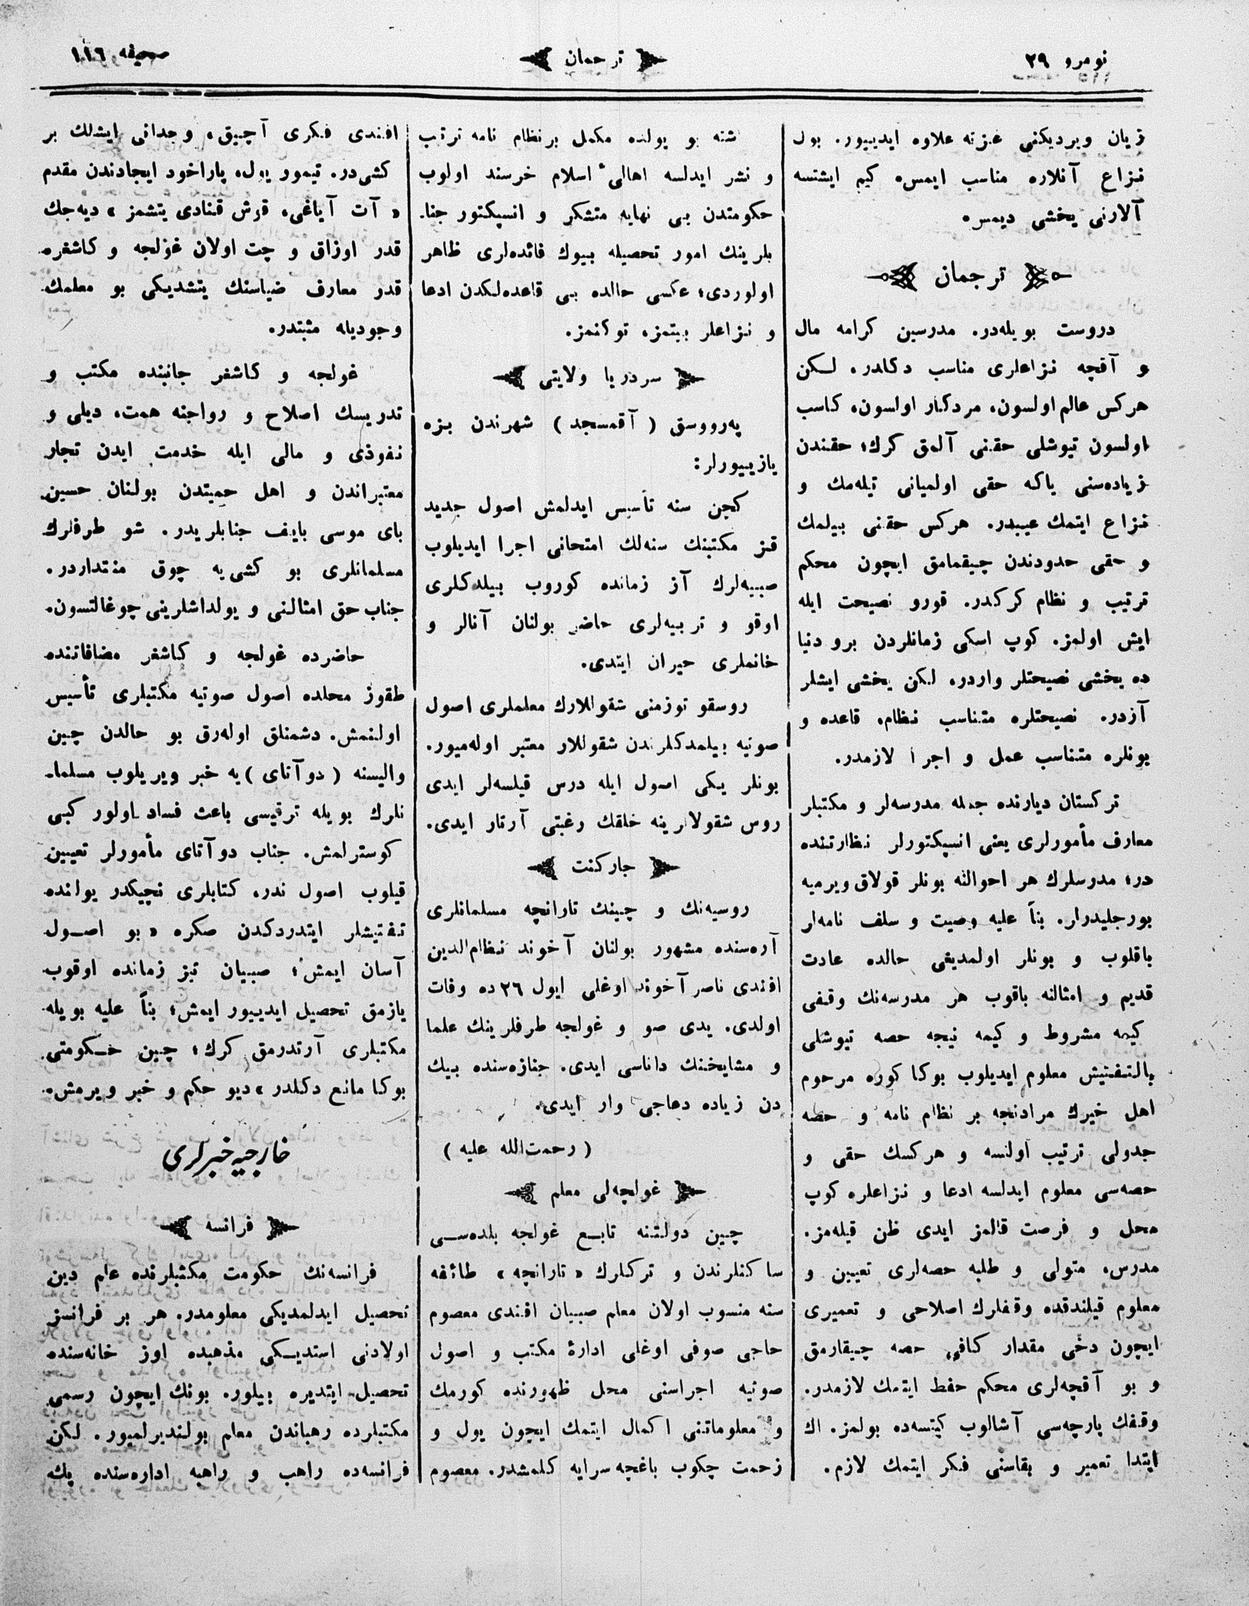 نومرو ٢٩
ترجمان
صحيفه ١١٦
زيان ويرديكنى غزته علاوه ايدييور. بول
نزاع آنلاره مناسب ايمس، كيم ايشتسه
آلارنى يخشى ديمس.
ترجمان
دروست بويله‌در. مدرسين كرامه مال
و آقچه نزاعلرى مناسب دكلدر. لكن
هركس عالم اولسون، مردكار اولسون، كاسب
اولسون تيوشلى حقنى آلمق كرك؛ حقندن
زياده‌سنى ياكه حقى اولميانى تيله‌مك و
نزاع ايتمك عيبدر. هركس حقنى بيلمك
و حقى حدودندن چيقمامق ايچون محكم
ترتيب و نظام كركدر. قورو نصيحت ايله
ايش اولمز. كوپ اسكى زمانلردن برو دنيا
ده يخشى نصيحتلر واردر، لكن يخشى ايشلر
آزدر. نصيحتلره متناسب نظام، قاعده و
بونلره متناسب عمل و اجرا لازمدر.
تركستان ديارنده جمله مدرسه‌لر و مكتبلر
معارف مأمورلرى يعنى انسپكتورلر نظارتنده
در؛ مدرسلرك هر احوالنه بونلر قولاق ويرميه
بورجليدرلر. بناً عليه وصيت و سلف نامه‌لر
باقلوب و بونلر اولمديغى حالده عادت
قديم و امثالنه باقوب هر مدرسه‌نك وقفى
كيمه مشروط و كيمه نيجه حصه تيوشلى
بالتفتيش معلوم ايديلوب بوكا كوره مرحوم
اهل خيرك مرادنجه بر نظام نامه و حصه
جدولى ترتيب اولنسه و هركسك حقى و
حصه‌سى معلوم ايدلسه ادعا و نزاعلره كوپ
محل و فرصت قالمز ايدى ظن قيله‌مز.
مدرس، متولى و طلبه حصه‌لرى تعيين و
معلوم قيلندقده وقفلرك اصلاحى و تعميرى
ايچون دخى مقدار كافى حصه چيقارمق
و بو آقچه‌لرى محكم حفظ ايتمك لازمدر.
وقفك پارچه‌سى آشالوب كيتسه‌ده بولمز. اك
ابتدا تعمير و بقاسنى فكر ايتمك لازم.
شته بو يولده مكمل بر نظام نامه ترتيب
و نشر ايدلسه اهالئ اسلام خرسند اولوب
حكومتدن بى نهايه متشكر و انسپكتور جنا‌
بلرينك امور تحصيله بيوك فائده‌لرى ظاهر
اولوردى؛ عكسى حالده بى قاعده‌لكدن ادعا
و نزاعلر بيتمز، توكنمز.
سردريا ولايتى
په‌رووسق (آقمسجد) شهرندن بزه
يازييورلر:
كچن سنه تأسيس ايدلمش اصول جديد
قز مكتبنك سنه‌لك امتحانى اجرا ايديلوب
صبيه‌لرك آز زمانده كوروب بيلدكلرى
اوقو و تربيه‌لرى حاضر بولنان آنالر و
خانملرى حيران ايتدى.
روسقو توزمنى شقوللارك معلملرى اصول
صوتيه بيلمدكلرندن شقوللار معتبر اوله‌ميور.
بونلر يكى اصول ايله درس قيلسه‌لر ايدى
روس شقولارينه خلقك رغبتى آرتار ايدى.
جاركنت
روسيه‌نك و چينك تارانچه مسلمانلرى
آره‌سنده مشهور بولنان آخوند نظام‌الدين
افندى ناصر آخوند اوغلى ايول ٢٦ده وفات
اولدى. يدى صو و غولجه طرفلرينك علما
و مشايخنك داناسى ايدى. جنازه‌سنده بيك
دن زياده دعاجى وار ايدى.
(رحمت‌الله عليه)
غولچه‌لى معلم
چين دولتنه تابع غولجه بلده‌سى
ساكنلرندن و تركلرك «تارانچه» طائفه
سنه منسوب اولان معلم صبيان افندى معصوم
حاجى صوفى اوغلى ادارۀ مكتب و اصول
صوتيه اجراسنى محل ظهورنده كورمك
و معلوماتنى اكمال ايتمك ايچون يول و
زحمت چكوب باغچه سرايه كلمشدر. معصوم
افندى فكرى آچيق، وجدانى ايشلك بر
كشى‌در. تيمور يول، پاراخود ايجادندن مقدم
«آت آياغى، قوش قنادى يتشمز» ديه‌جك
قدر اوزاق و چت اولان غولجه و كاشغره
قدر معارف ضياسنك يتشديكى بو معلمك
وجوديله مثبتدر.
غولجه و كاشغر جانبنده مكتب و
تدريسك اصلاح و رواجنه همت، ديلى و
نفوذى و مالى ايله خدمت ايدن تجار
معتبراندن و اهل حميتدن بولنان حسين
باى موسى بايف جنابلريدر. شو طرفلرك
مسلمانلرى بو كشى‌يه چوق منتداردر.
جناب حق امثالنى و يولداشلرينى چوغالتسون.
حاضرده غولجه و كاشغر مضافاتنده
طقوز محلده اصول صوتيه مكتبلرى تأسيس
اولنمش. دشمنلق اوله‌رق بو حالدن چين
واليسنه (دوآتاى) يه خبر ويريلوب مسلما‌
نلرك بويله ترقيسى باعث فساد اولور كبى
كوسترلمش. جناب دوآتاى مأمورلر تعيين
قيلوب اصول ندر، كتابلرى نچيكدر يولنده
تفتيشلر ايتدردكدن صكره «بو اصول
آسان ايمش؛ صبيان تيز زمانده اوقوب
يازمق تحصيل ايدييور ايمش؛ بناً عليه بويله
مكتبلرى آرتدرمق كرك؛ چين حكومتى
بوكا مانع دكلدر» ديو حكم و خبر ويرمش.
خارجيه خبرلرى
فرانسه
فرانسه‌نك حكومت مكتبلرنده علم دين
تحصيل ايدلمديكى معلومدر. هر بر فرانسز
اولادنى استديكى مذهبده اوز خانه‌سنده
تحصيل ايتديره بيلور. بونك ايچون رسمى
مكتبلرده رهباندن معلم بولنديرلميور. لكن
فرانسه‌ده راهب و راهبه اداره‌سنده پك